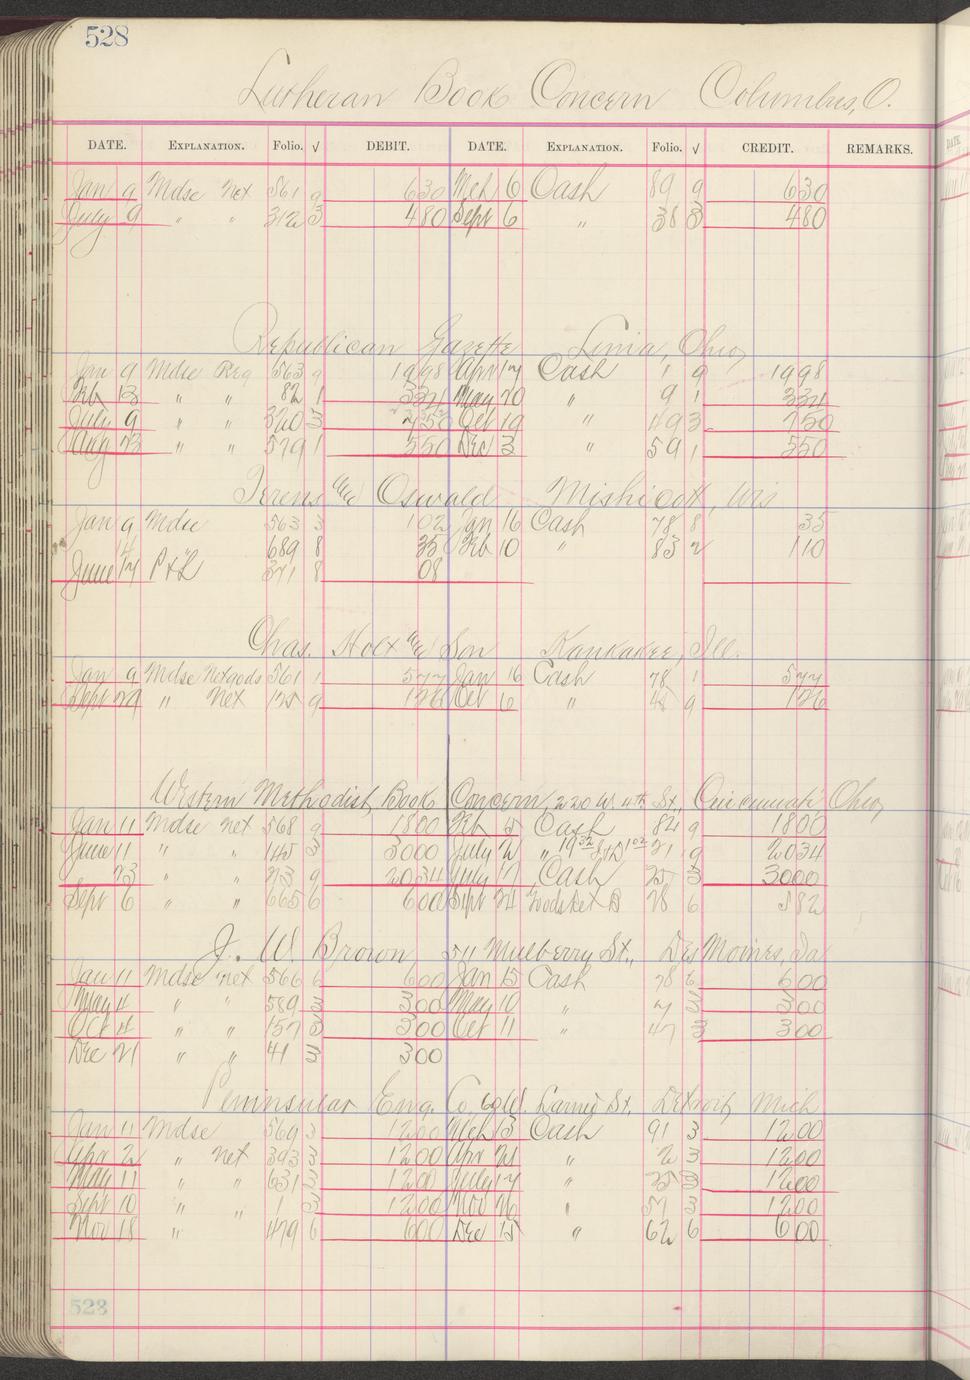 528
Lutheran Book Concern Columbus, O.
DATE. EXPLANATION. Folio. √ DEBIT. DATE. EXPLANATION. Folio. √ CREDIT. REMARKS.
Jan 9 Mdse Net 561 9 630 Mch 6 Cash 89 9 630
July 9 " " 312 3 480 Sept 6 " 38 3 480
Republican Gazette Ohio
Jan 9 Mdse Reg 563 9 1998 Apr 17 Cash 1 9 1998
Feb 13 " " 82 1 334 May 20 " 9 1 334
July 9 " " 320 3 750 Oct 19 " 493 750
Aug 23 " " 579 1 550 Dec 3 " 59 1 550
Oswald Mishicott, Wis
Jan 9 Mdse 563 3 102 Jan 16 Cash 78 8 35
14 " 689 8 35 Feb 10 " 83 2 110
June 17 P&L 371 8 08
Chas. Holt & Son Kankakee, Ill.
Jan 9 Mdse Net goods 561 1 577 Jan 16 Cash 78 1 577
Sept 29 " Net 125 9 126 Oct 6 " 45 9 126
Western Methodist Book Concern, 220 W. 4th St., Cincinnati Ohio,
Jan 11 Mdse net 568 9 1800 Feb 5 Cash 84 9 1800
June 11 " " 145 3 3000 July 2 " 19 32 1 02 21 9 2034
23 " " 213 9 2034 July 17 Cash 25 3 3000
Sept 6 " " 665 6 600 Sept 24 28 6 582
J. W. Brown 511 Mulberry St., Des Moines, Ia
Jan 11 Mdse net 566 6 600 Jan 15 Cash 78 6 600
May 4 " " 589 3 300 May 10 " 7 3 300
Oct 4 " " 157 3 300 Oct 11 " 47 3 300
Dec 21 " " 41 3 300
Peninsular Eng. Co, 60 W. Larned St., Detroit, Mich
Jan 11 Mdse 569 3 1200 Mch 3 Cash 91 3 1200
Apr 2 " net 393 3 1200 Apr 21 " 2 3 1200
May 11 " " 631 3 1200 July 17 " 25 3 1200
Sept 10 " " 1 3 1200 Nov 16 " 57 3 1200
Nov 18 " 479 6 600 Dec 15 " 62 6 600
528